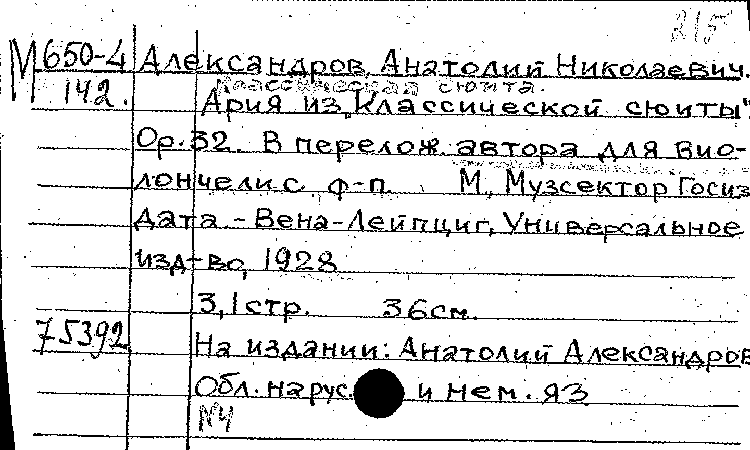 215
М 650-4 Александров, Анатолий Николаевич.
142. Классическая сюита.
Ария из „Классической сюиты".
Ор. 32. В перелож. автора для вио-
лончели с ф-п. М., Музсектор Госиз
дата. - Вена-Лейпциг, Универсальное
изд-во, 1928
3,1 стр. 36 см.
75392 На издании: Анатолий Александров
Обл. на рус. и нем. яз
N4